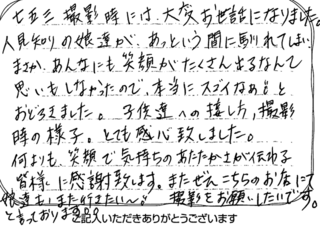 七五三撮影時には、大変お世話になりました。
人見知りの娘達が、あっという間に馴れてしまい
まさか、あんなにも笑顔がたくさん出るなんて
思いもしなかったので、本当にスゴイなぁと
おどろきました。子供達への接し方、撮影
時の様子。とても感心致しました。
何よりも、笑顔で気持ちのあたたかさが伝わる
皆様に感謝致します。またぜひこちらのお店にて
撮影をお願いしたいです。
娘達もまた行きたい〜
と言っております
ご記入いただきありがとうございます